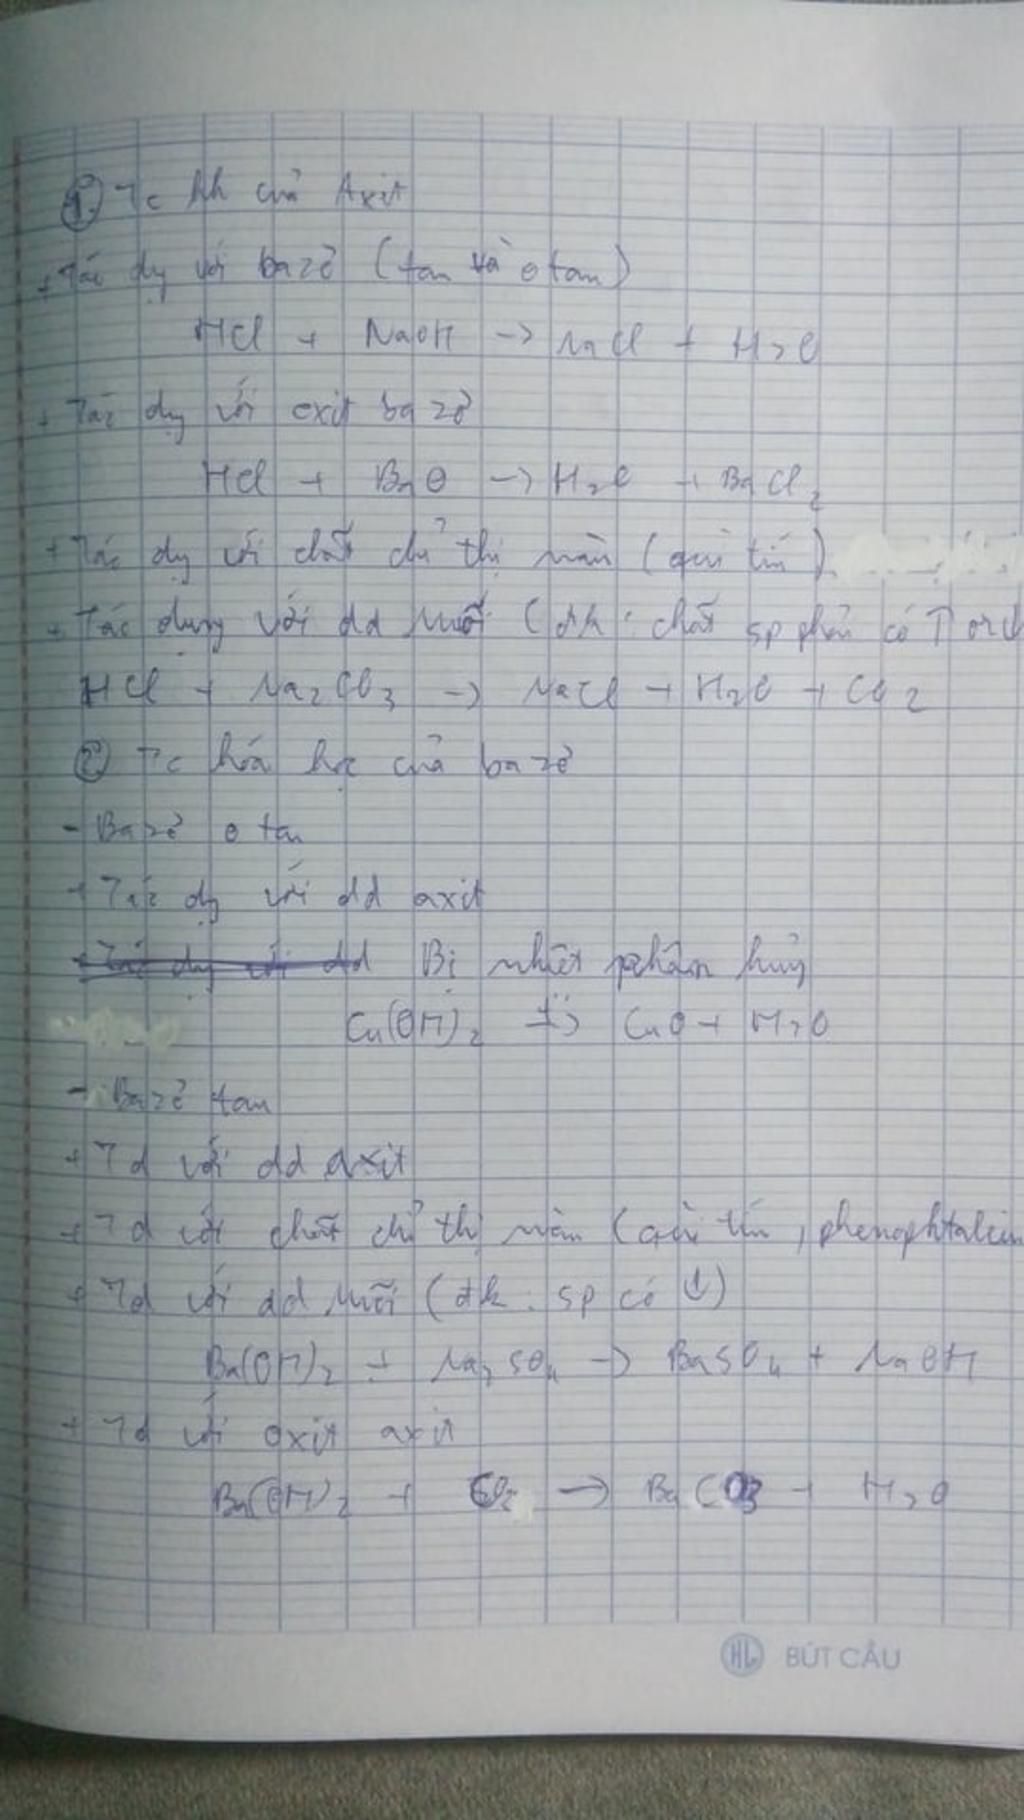 ① Tc hh của Axit
+ Tác dg với bazơ (tan và o tan)
HCl + NaOH -> NaCl + H2O
+ Tác dg với oxit bazơ
HCl + BaO -> H2O + BaCl2
+ Tác dg với chất chỉ thị màu (quì tím)
+ Tác dụng với dd muối (đk: chất sp phải có ↑ or ↓
HCl + Na2CO3 -> NaCl + H2O + CO2
② Tc hóa học của bazơ
- Bazơ o tan
+ Tác dg với dd axit
+ Tác dg với dd Bị nhiệt phân hủy
Cu(OH)2 t°-> CuO + H2O
- Bazơ tan
+ Td với dd axit
+ Td với chất chỉ thị màu (quì tím, phenophtalein
+ Td với dd muối (đk: sp có ↓)
Ba(OH)2 + Na2SO4 -> BaSO4 + NaOH
+ Td với oxit axit
Ba(OH)2 + CO2 -> BaCO3 + H2O
HL BÚT CÂU